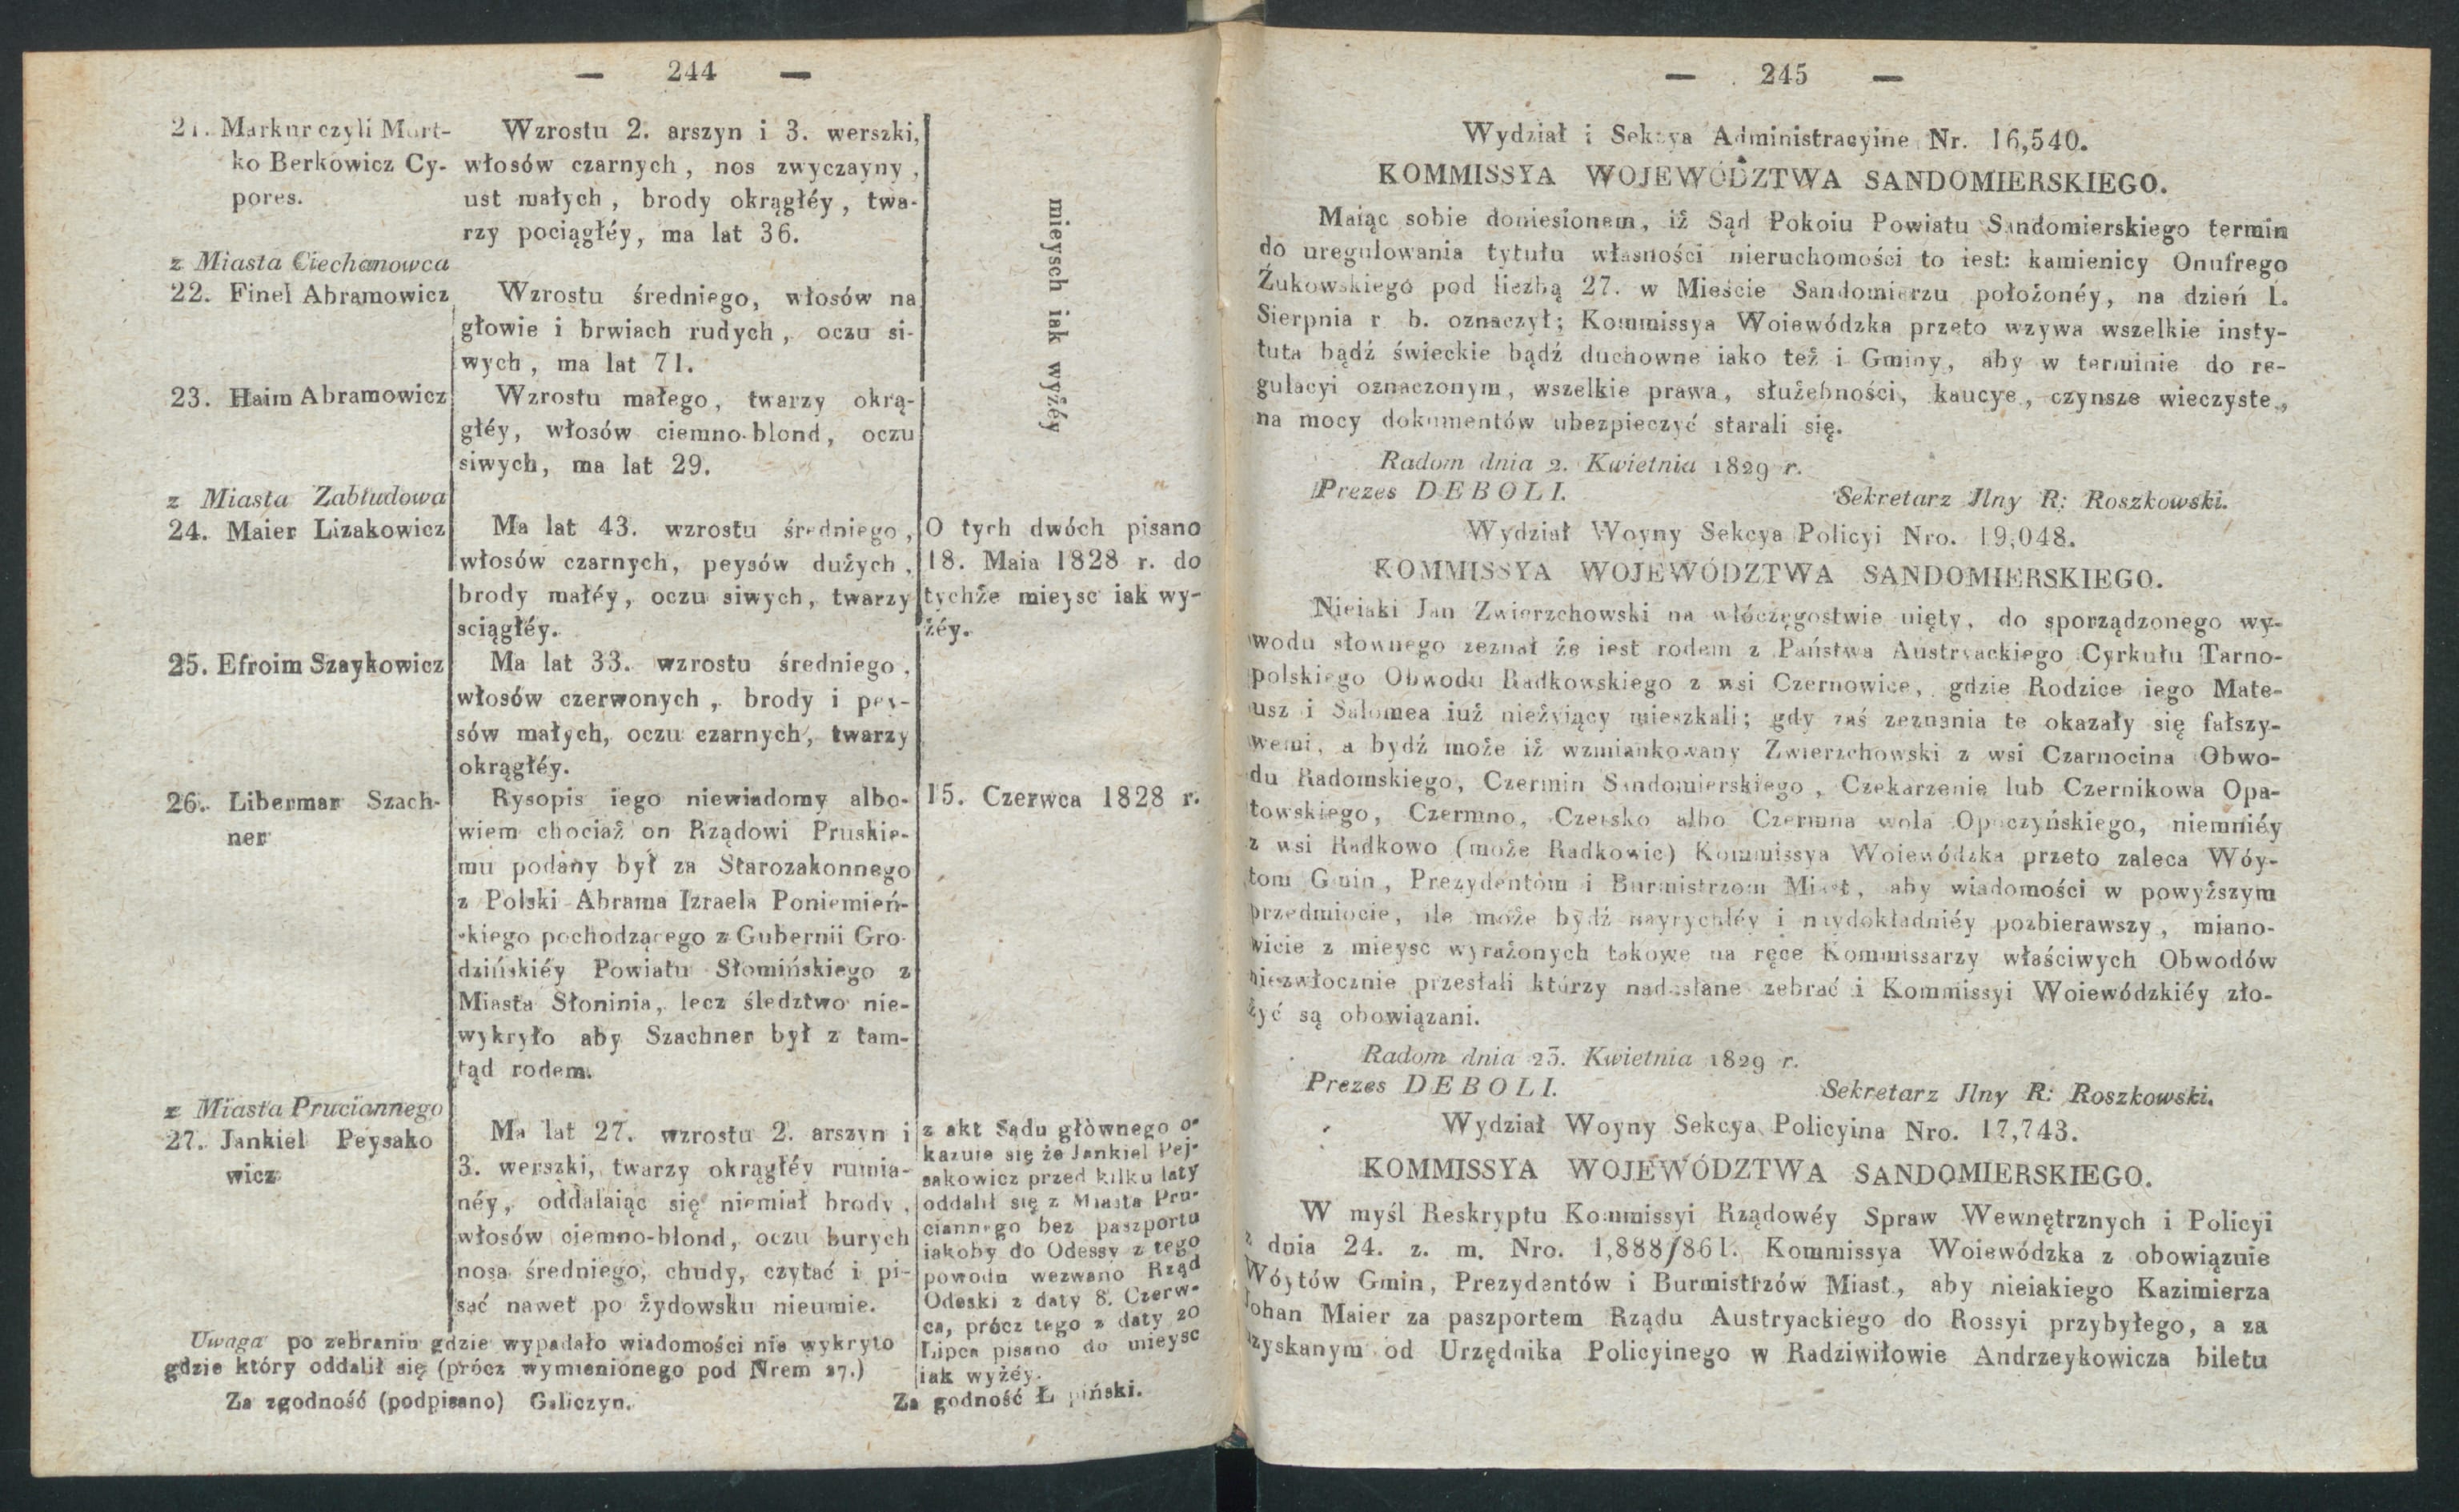 — 244 —
21. Markur czyli Mort-
ko Berkowicz Cy-
pores.
Wzrostu 2. arszyn i 3. werszki,
włosów czarnych, nos zwyczayny,
ust małych, brody okrągłéy, twa-
rzy pociągłéy, ma lat 36.
z Miasta Ciechanowca
22. Finel Abramowicz
Wzrostu średniego, włosów na
głowie i brwiach rudych, oczu si-
wych, ma lat 71.
23. Haim Abramowicz
Wzrostu małego, twarzy okrą-
głéy, włosów ciemno-blond, oczu
siwych, ma lat 29.
mieysch iak wyżéy
z Miasta Zabłudowa
24. Maier Lizakowicz
Ma lat 43. wzrostu średniego,
włosów czarnych, peysów dużych,
brody małéy, oczu siwych, twarzy
sciągłéy.
O tych dwóch pisano
18. Maia 1828 r. do
tychże mieysc iak wy-
żéy.
25. Efroim Szaykowicz
Ma lat 33. wzrostu średniego,
włosów czerwonych, brody i pey-
sów małych, oczu czarnych, twarzy
okrągłéy.
26. Libermar Szach-
ner
Rysopis iego niewiadomy albo-
wiem chociaż on Rządowi Pruskie-
mu podany był za Starozakonnego
z Polski Abrama Izraela Poniemień-
skiego pochodzącego z Gubernii Gro-
dzińskiéy Powiatu Słomińskiego z
Miasta Słoninia, lecz śledztwo nie-
wykryło aby Szachner był z tam-
tąd rodem.
15. Czerwca 1828 r.
z Miasta Pruciannego
27. Jankiel Peysako
wicz
Ma lat 27. wzrostu 2. arszyn i
3. werszki, twarzy okrągłéy rumia-
néy, oddalaiąc się niemiał brody,
włosów ciemno-blond, oczu burych
nosa średniego, chudy, czytać i pi-
sać nawet po żydowsku nieumie.
z akt Sądu głównego o-
kazuie się że Jankiel Pej-
sakowicz przed kilku laty
oddalił się z Miasta Pru-
ciannego bez paszportu
iakoby do Odessy z tego
powodu wezwano Rząd
Odeski z daty 8. Czerw-
ca, prócz tego z daty 20
Lipca pisano do mieysc
iak wyżéy.
Uwaga po zebraniu gdzie wypadało wiadomości nie wykryto
gdzie który oddalił się (prócz wymienionego pod Nrem 27.)
Za zgodność (podpisano) Galiczyn.
Za godność Ł piński.
— 245 —
Wydział i Sekcya Administracyine Nr. 16,540.
KOMMISSYA WOJEWÓDZTWA SANDOMIERSKIEGO.
Maiąc sobie doniesionem, iż Sąd Pokoiu Powiatu Sandomierskiego termin
do uregulowania tytułu własności nieruchomości to iest: kamienicy Onufrego
Żukowskiego pod liczbą 27. w Mieście Sandomierzu położonéy, na dzień 1.
Sierpnia r. b. oznaczył; Kommissya Woiewódzka przeto wzywa wszelkie insty-
tuta bądź świeckie bądź duchowne iako też i Gminy, aby w terminie do re-
gulacyi oznaczonym, wszelkie prawa, służebności, kaucye, czynsze wieczyste,
na mocy dokumentów ubezpieczyć starali się.
Radom dnia 2. Kwietnia 1829 r.
Prezes DEBOLI.
Sekretarz Jlny R: Roszkowski.
Wydział Woyny Sekcya Policyi Nro. 19,048.
KOMMISSYA WOJEWÓDZTWA SANDOMIERSKIEGO.
Nieiaki Jan Zwierzchowski na włóczęgostwie uięty, do sporządzonego wy-
wodu słownego zeznał że iest rodem z Państwa Austryackiego Cyrkułu Tarno-
polskiego Obwodu Radkowskiego z wsi Czernowice, gdzie Rodzice iego Mate-
usz i Salomea iuż nieżyiący mieszkali; gdy zaś zeznania te okazały się fałszy-
wemi, a bydź może iż wzmiankowany Zwierzchowski z wsi Czarnocina Obwo-
du Radomskiego, Czermin Sandomierskiego, Czekarzenie lub Czernikowa Opa-
towskiego, Czermno, Czersko albo Czermna wola Opoczyńskiego, niemniéy
z wsi Radkowo (może Radkowic) Kommissya Woiewódzka przeto zaleca Wóy-
tom Gmin, Prezydentóm i Burmistrzom Miast, aby wiadomości w powyższym
przedmiocie, ile może bydź nayrychléy i naydokładniéy pozbierawszy, miano-
wicie z mieysc wyrażonych takowe na ręce Kommissarzy właściwych Obwodów
niezwłocznie przesłali którzy nadesłane zebrać i Kommissyi Woiewódzkiéy zło-
żyć są obowiązani.
Radom dnia 23. Kwietnia 1829 r.
Prezes DEBOLI.
Sekretarz Jlny R: Roszkowski.
Wydział Woyny Sekcya Policyina Nro. 17,743.
KOMMISSYA WOJEWÓDZTWA SANDOMIERSKIEGO.
W myśl Reskryptu Kommissyi Rządowéy Spraw Wewnętrznych i Policyi
z dnia 24. z. m. Nro. 1,888/861. Kommissya Woiewódzka z obowiązuie
Wóytów Gmin, Prezydentów i Burmistrzów Miast, aby nieiakiego Kazimierza
Johan Maier za paszportem Rządu Austryackiego do Rossyi przybyłego, a za
uzyskanym od Urzędnika Policyinego w Radziwiłowie Andrzeykowicza biletu